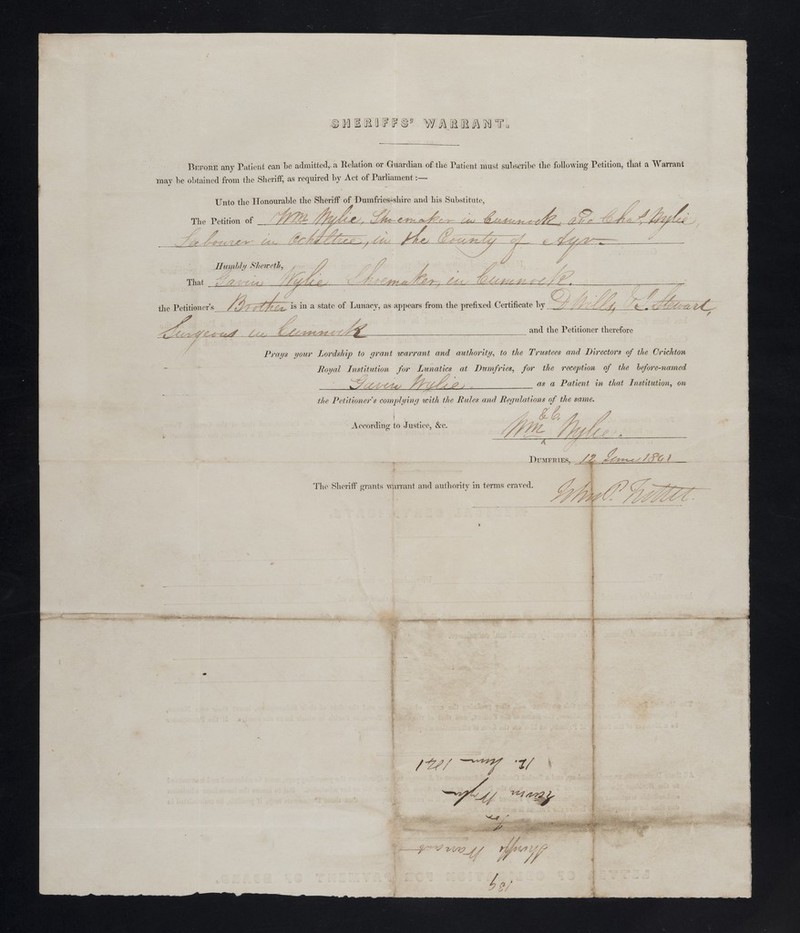 SHERIFFS' WARRANT.
BEFORE any Patient can be admitted, a Relation or Guardian of the Patient must subscribe the following Petition, that a Warrant
may be obtained from the Sheriff, as required by Act of Parliament:—
Unto the Honourable the Sheriff of Dumfries-shire and his Substitute,
The Petition of Wm Wylie, Shoemaker in Cumnock and Chas. Wylie,
Labourer in Ochiltree, in the County of Ayr
Humbly Sheweth,
That Gavin Wylie Shoemaker, in Cumnock.
the Petitioner's Brother is in a state of Lunacy, as appears from the prefixed Certificate by Stewart,
Surgeons in Cumnock and the Petitioner therefore
Prays your Lordship to grant warrant and authority, to the Trustees and Directors of the Crichton
Royal Institution for Lunatics at Dumfries, for the reception of the before-named
Gavin Wylie. as a Patient in that Institution, on
the Petitioner's complying with the Rules and Regulations of the same.
According to Justice, &c. Wm Wylie.
DUMFRIES, 12 June 1841
The Sheriff grants warrant and authority in terms craved. John P. Trotter
139
Sheriffs Warrant
for
Gavin Wylie
12 June 1841